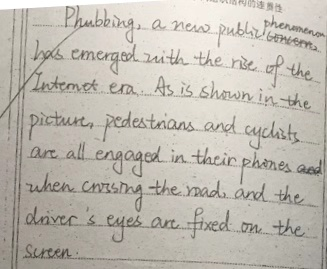 Phubbing, a new public phenomenon
has emerged with the rise of the
Internet era. As is shown in the
picture, pedestrians and cyclists
are all engaged in their phones
when crossing the road, and the
driver's eyes are fixed on the
screen.